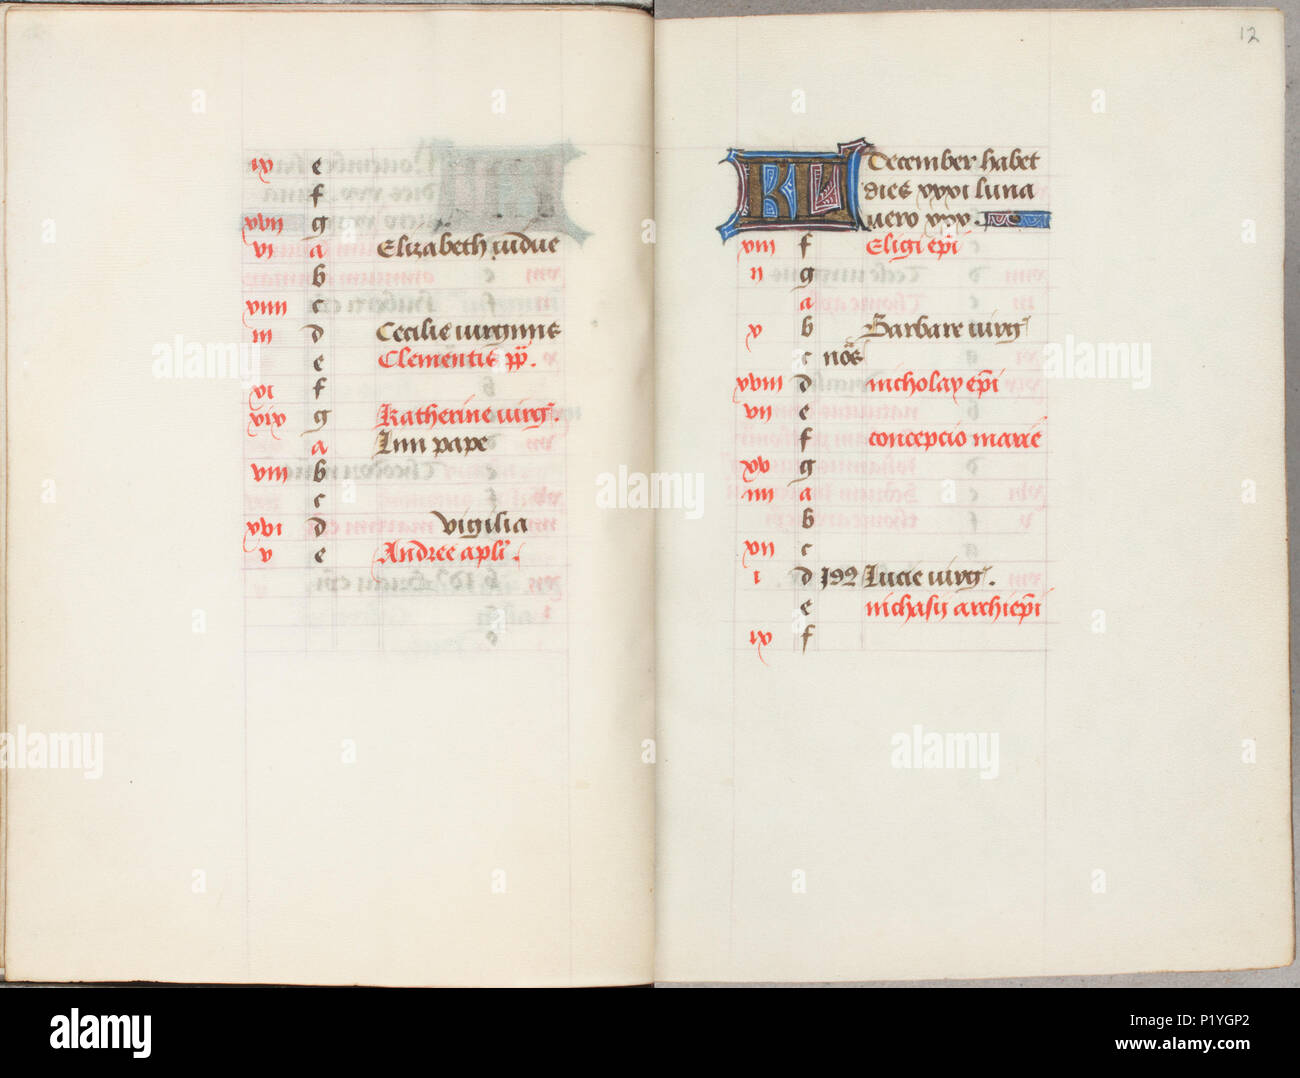 ix e
f
xvii g
vi a Elizabeth vidue
b
xiiii c
iii d Cecilie virginis
e Clementis pp.
xi f
xix g Katherine virg.
a Linn pape
viii b
c
xvi d vigilia
v e Andree apli.
12
KL December habet
dies xxxi luna
vero xxx.
xiii f Eligi epi
ii g
a
x b Barbare virg
c nos
xviii d nicholay epi
vii e
f concepcio marie
xv g
iiii a
b
xii c
i d Lucie virg.
e nichasii archiepi
ix f
a alamy
alamy
Image ID: P1YGP2
www.alamy.com